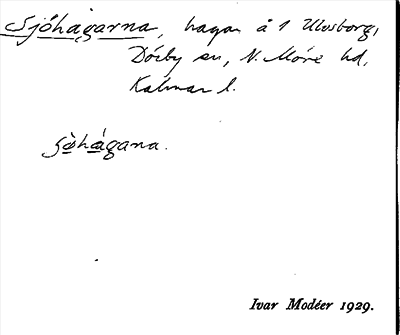 Sjöhagarna, hagar å 1 Ulvsborg,
Dörby sn, N. Möre hd,
Kalmar l.
sjöhágana.
Ivar Modéer 1929.